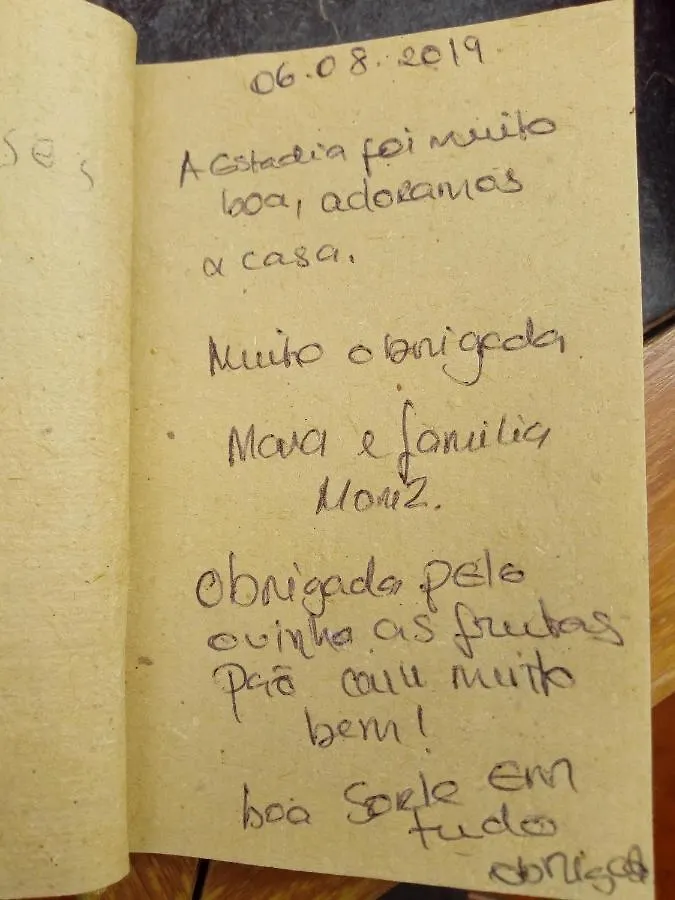 se,
06.08.2019
A Estadia foi muito
boa, adoramos
a casa.
Muito obrigada
e familia
Moniz.
Obrigada pelo
ovinho as frutas
pão caiu muito
bem!
boa sorte em
tudo